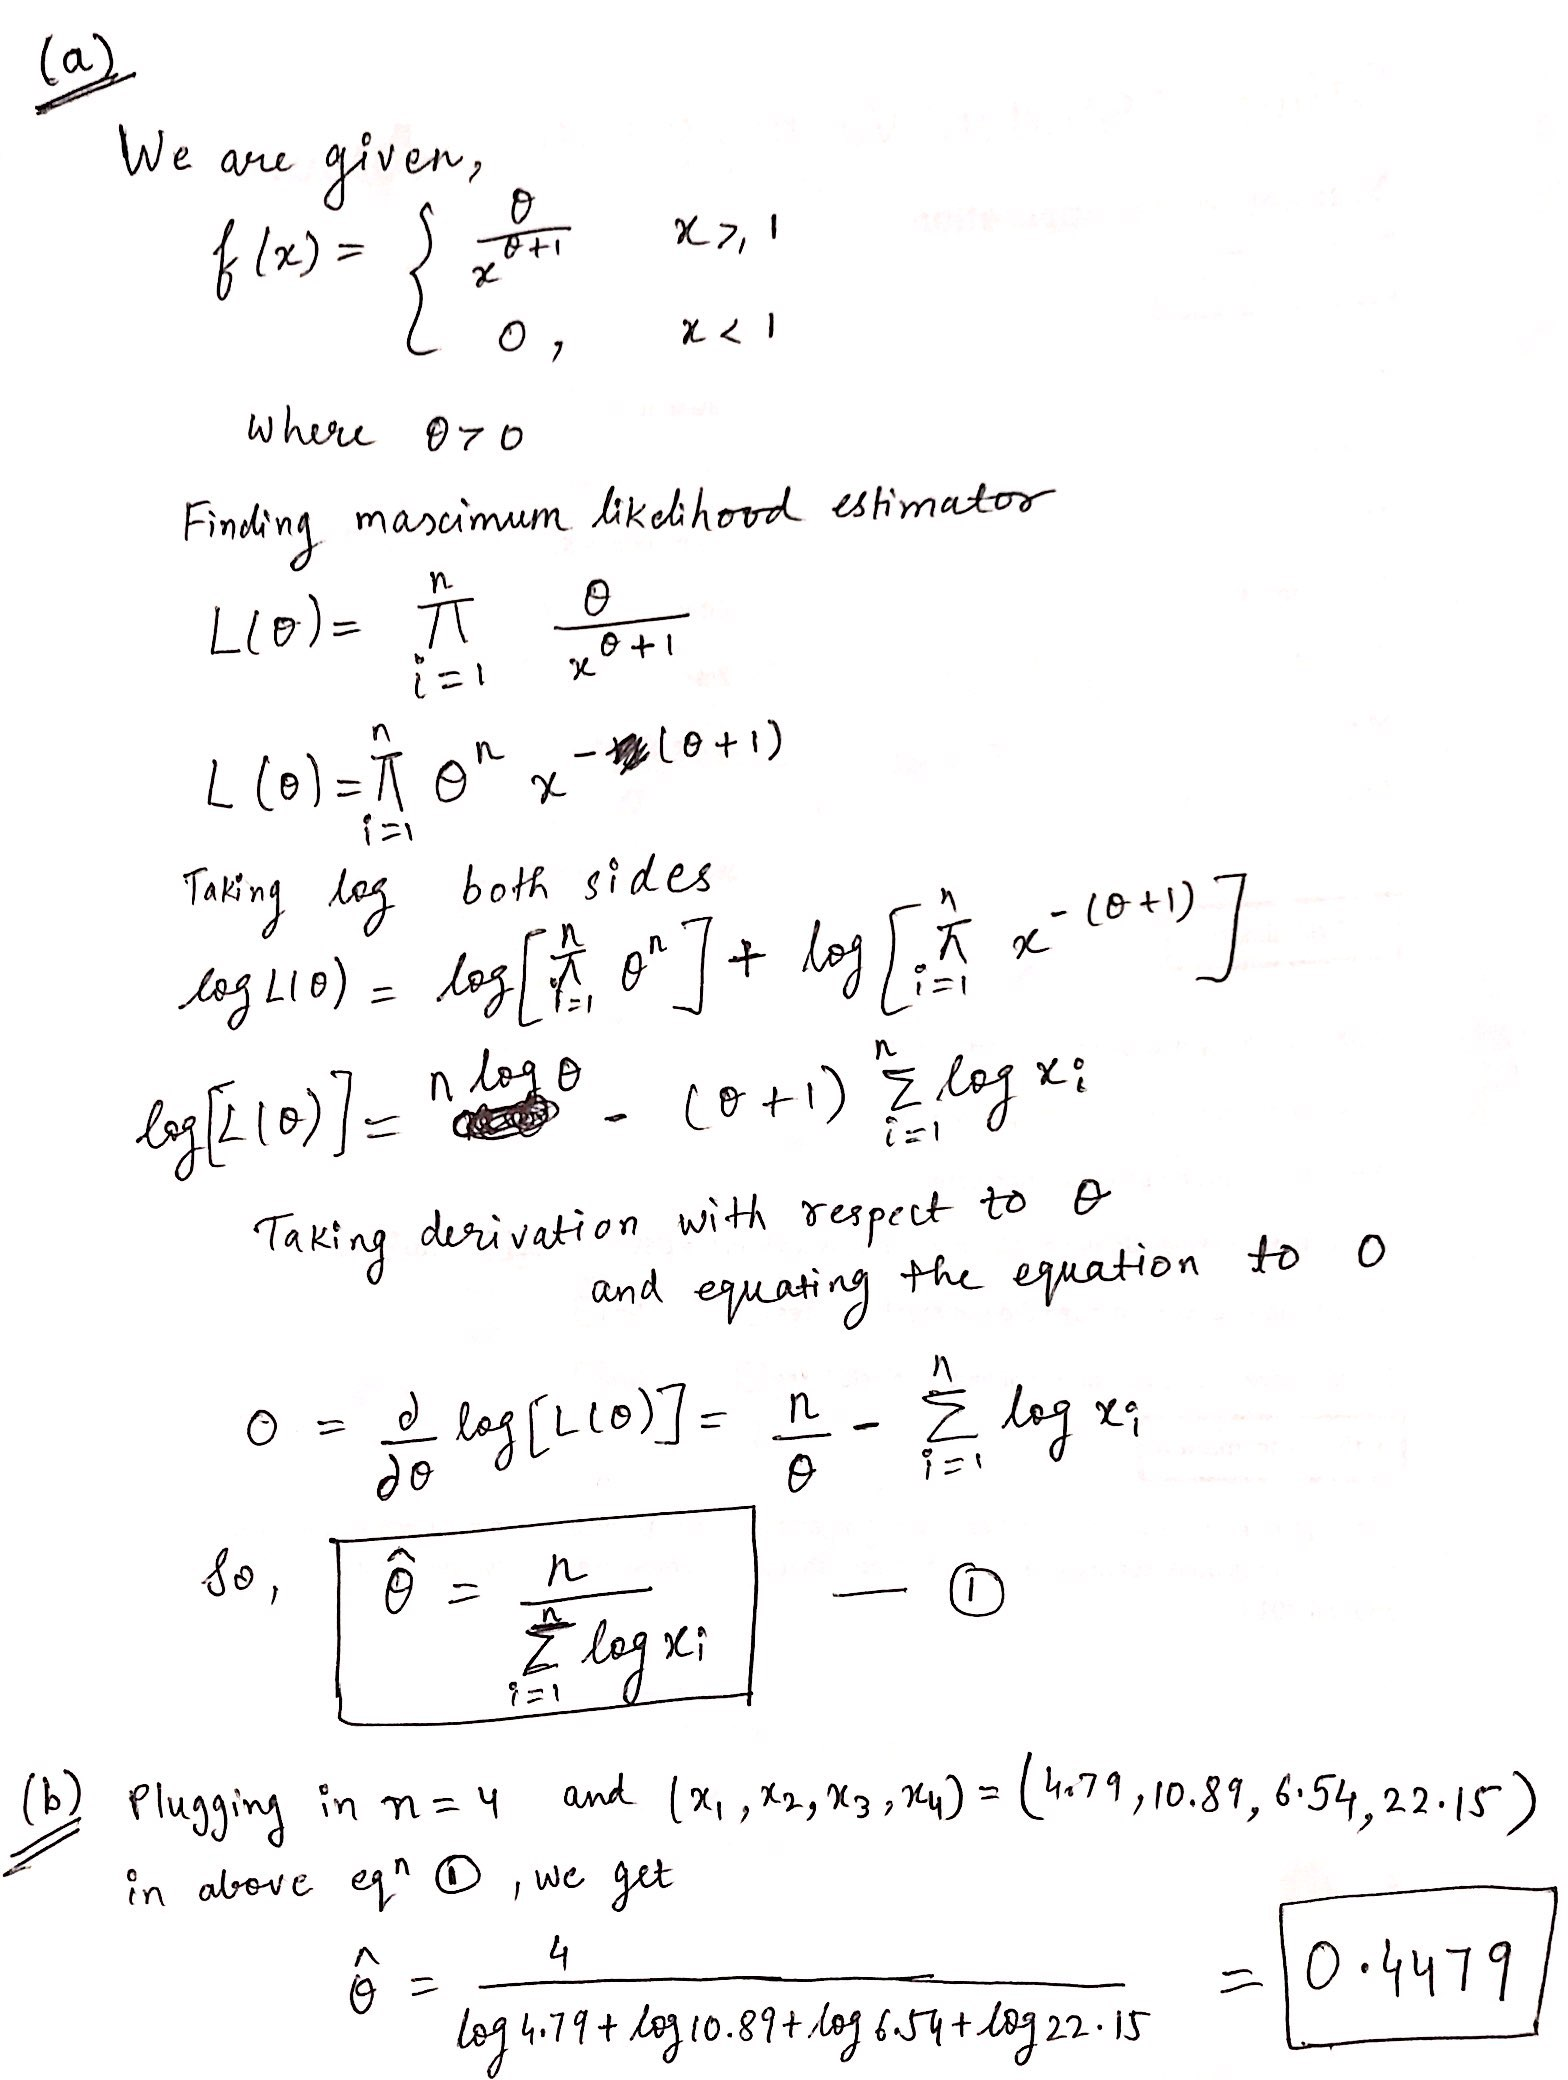 (a)
We are given,
f(x) = { θ / x^(θ+1)   x ≥ 1
0,   x < 1
where θ > 0
Finding maximum likelihood estimator
L(θ) = ∏_{i=1}^{n} θ / x^(θ+1)
L(θ) = ∏_{i=1}^{n} θ^n x^-(θ+1)
Taking log both sides
log L(θ) = log[∏_{i=1}^{n} θ^n] + log[∏_{i=1}^{n} x^-(θ+1)]
log[L(θ)] = n log θ - (θ+1) ∑_{i=1}^{n} log xi
Taking derivation with respect to θ
and equating the equation to 0
0 = ∂/∂θ log[L(θ)] = n/θ - ∑_{i=1}^{n} log xi
So, θ̂ = n / ∑_{i=1}^{n} log xi — ①
(b) Plugging in n = 4 and (x1, x2, x3, x4) = (4.79, 10.89, 6.54, 22.15)
in above eqn ①, we get
θ̂ = 4 / (log 4.79 + log 10.89 + log 6.54 + log 22.15) = 0.4479